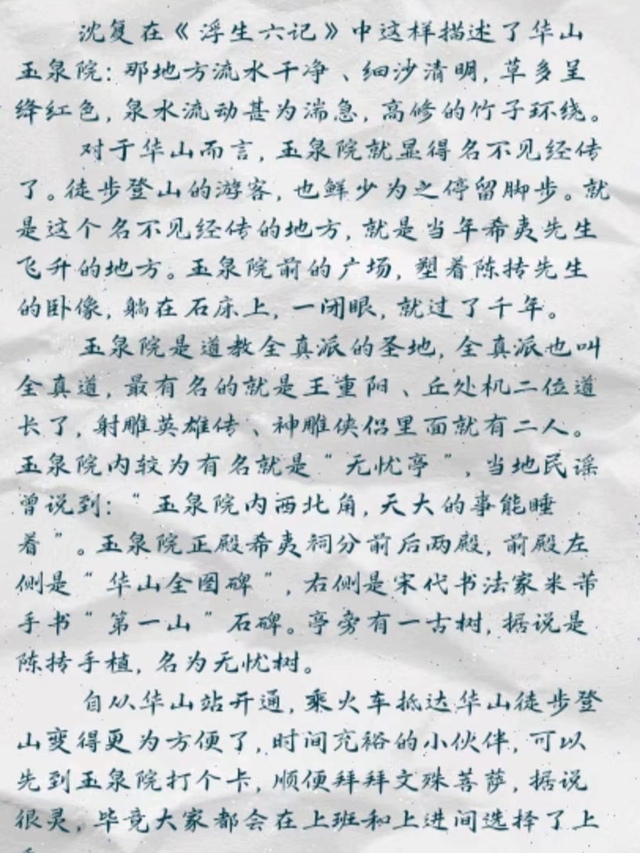 沈复在《浮生六记》中这样描述了华山
玉泉院：那地方流水干净、细沙清明，草多呈
绛红色，泉水流动甚为湍急，高修的竹子环绕。
对于华山而言，玉泉院就显得名不见经传
了。徒步登山的游客，也鲜少为之停留脚步。就
是这个名不见经传的地方，就是当年希夷先生
飞升的地方。玉泉院前的广场，塑着陈抟先生
的卧像，躺在石床上，一闭眼，就过了千年。
玉泉院是道教全真派的圣地，全真派也叫
全真道，最有名的就是王重阳、丘处机二位道
长了，射雕英雄传、神雕侠侣里面就有二人。
玉泉院内较为有名就是“无忧亭”，当地民谣
曾说到：“玉泉院内西北角，天大的事能睡
着”。玉泉院正殿希夷祠分前后两殿，前殿左
侧是“华山全图碑”，右侧是宋代书法家米芾
手书“第一山”石碑。亭旁有一古树，据说是
陈抟手植，名为无忧树。
自从华山站开通，乘火车抵达华山徒步登
山变得更为方便了，时间充裕的小伙伴，可以
先到玉泉院打个卡，顺便拜拜文殊菩萨，据说
很灵，毕竟大家都会在上班和上进间选择了上